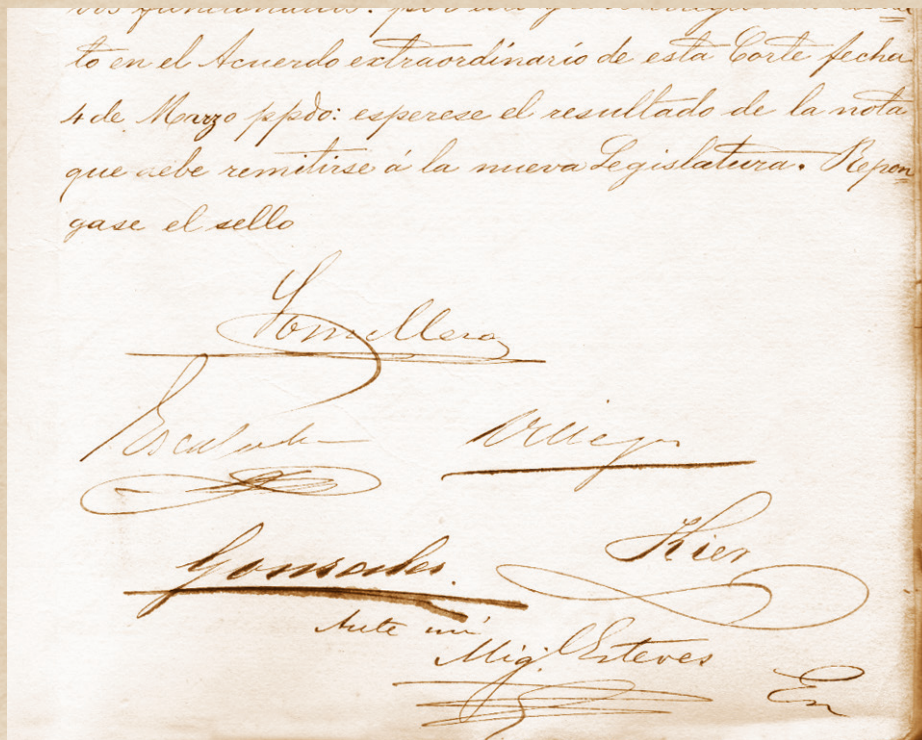 to en el Acuerdo extraordinario de esta Corte fecha
4 de Marzo ppdo: esperese el resultado de la nota
que debe remitirse á la nueva Legislatura. Repon=
gase el sello
Somellera
Escalada Villegas
Gonsales. Kier
Ante mi
Mig.l Esteves
En